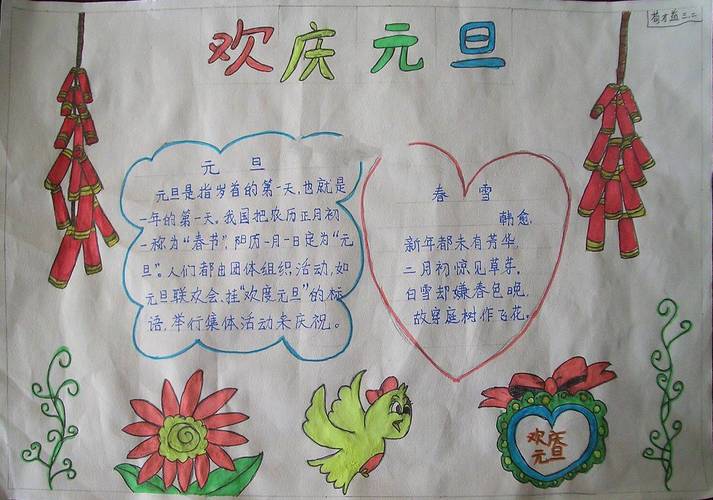 欢庆元旦
三.二
元旦
元旦是指岁首的第一天,也就是
一年的第一天。我国把农历正月初
一称为“春节”,阳历一月一日定为“元
旦”。人们都由团体组织活动,如
元旦联欢会、挂“欢度元旦”的标
语,举行集体活动来庆祝。
春雪
韩愈.
新年都未有芳华,
二月初惊见草芽。
白雪却嫌春色晚,
故穿庭树作飞花。
欢庆
元旦